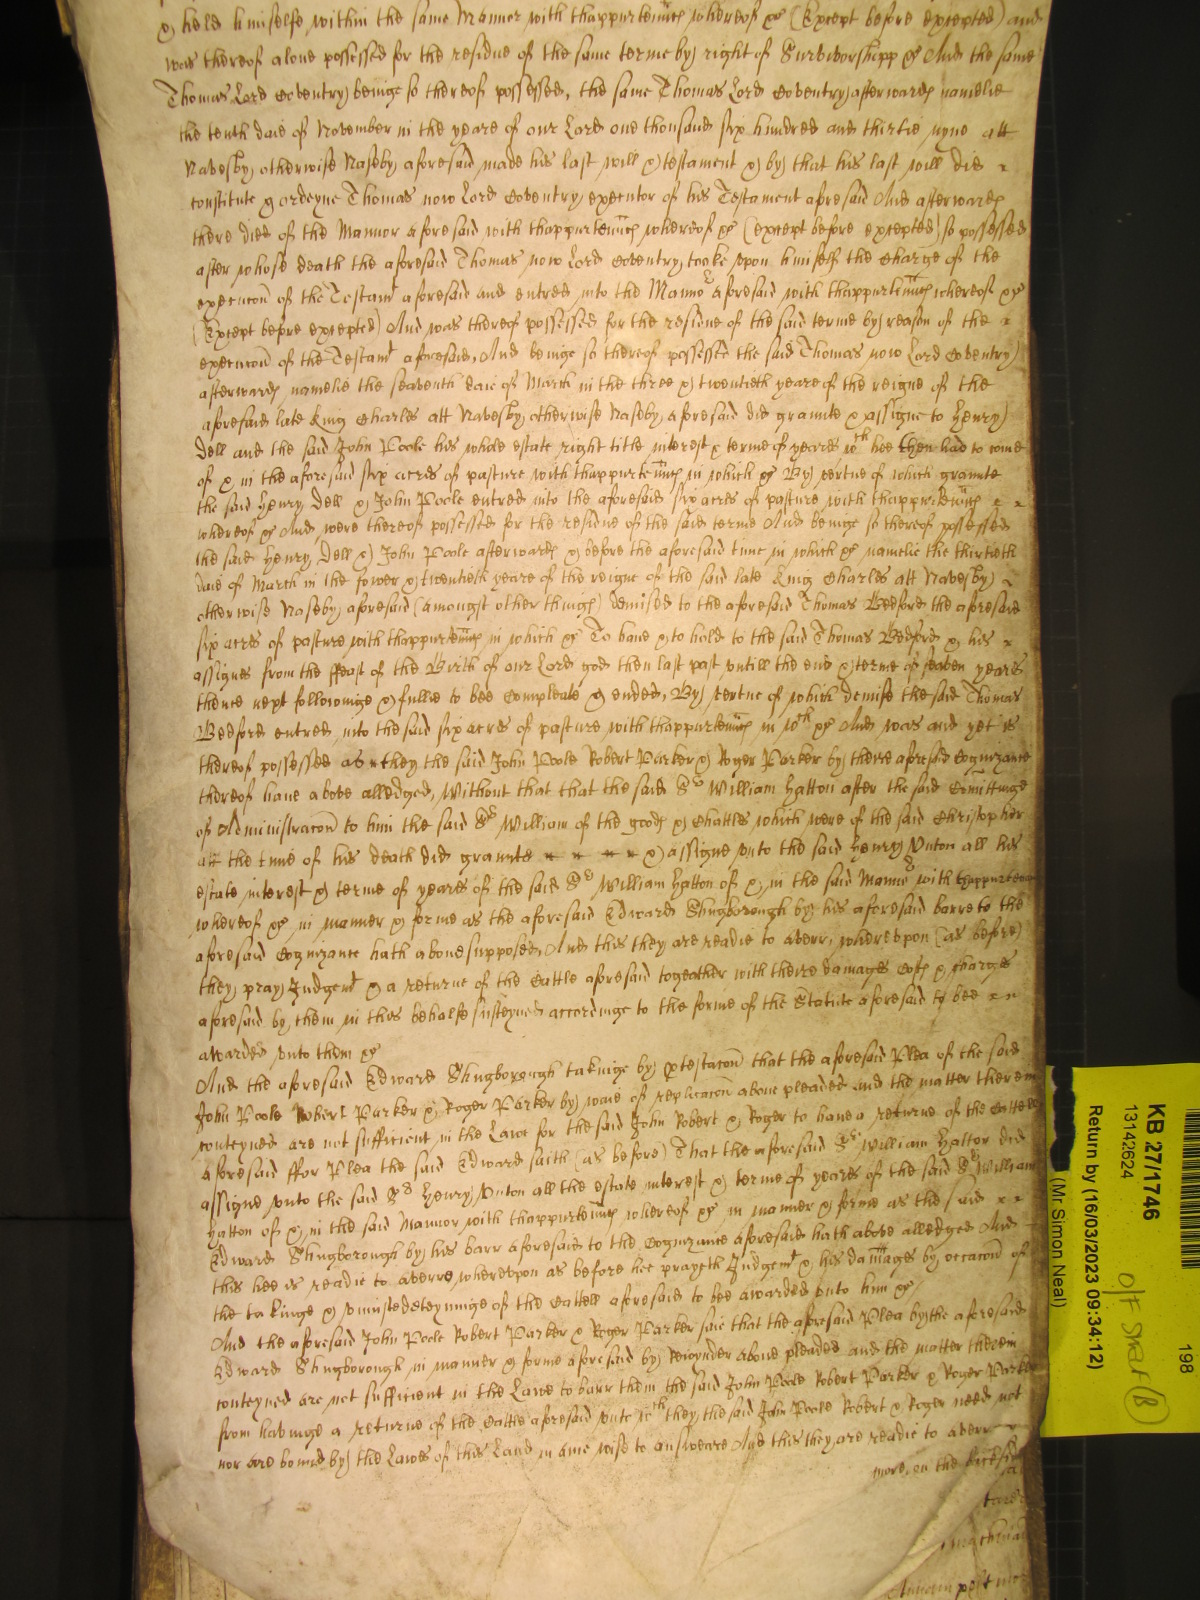 & held himselfe within the same Mannor with thappurtenncs whereof &c (Except before excepted) and
was thereof alone possessed for the residue of the same terme by right of Survivorshipp &c And the same
Thomas Lord Coventry beinge so thereof possessed, the same Thomas Lord Coventry afterwards namelie
the tenth daie of November in the yeare of our Lord one thousand six hundred and thirtie nyne att
Navesby otherwise Naseby aforesaid made his last will & testament & by that his last will did
constitute & ordeyne Thomas now Lord Coventry executor of his Testament aforesaid And afterwards
there died of the Mannor aforesaid with thappurtenncs whereof &c (except before excepted) so possessed
after whose death the aforesaid Thomas now Lord Coventry tooke upon himselfe the Charge of the
execucon of the Testamt aforesaid and entred into the Mannor aforesaid with thappurtenncs whereof &c
(Except before excepted) And was thereof possessed for the residue of the said terme by reason of the
execucon of the Testamt aforesaid, And beinge so thereof possessed the said Thomas now Lord Coventry
afterwards namelie the seaventh daie of March in the three & twentieth yeare of the reigne of the
aforesaid late King Charles att Navesby otherwise Naseby aforesaid did graunte & assigne to Henry
Dell and the said John Poole his whole estate right title interest & terme of yeares wch hee then had to come
of & in the aforesaid six acres of pasture with thappurtenncs in which &c By vertue of which graunte
the said Henry Dell & John Poole entred into the aforesaid six acres of pasture with thappurtenncs
whereof &c And were thereof possessed for the residue of the said terme And beinge so thereof possessed
the said Henry Dell & John Poole afterwards & before the aforesaid time in which &c namelie the thirtieth
daie of March in the fower & twentieth yeare of the reigne of the said late King Charles att Navesby
otherwise Naseby aforesaid (amongst other things) demised to the aforesaid Thomas Bedford the aforesaid
six acres of pasture with thappurtenncs in which &c To have & to hold to the said Thomas Bedford & his
assignes from the ffeast of the Birth of our Lord god then last past untill the end & terme of seaven yeares
thence next followinge & fullie to bee Compleate & ended, By vertue of which demise the said Thomas
Bedford entred into the said six acres of pasture with thappurtenncs in wch &c And was and yet is
thereof possessed as they the said John Poole Robert Parker & Roger Parker by theire aforesaid Cognizance
thereof have above alledged, Without that that the said Sr William Hatton after the said Comittinge
of Administracon to him the said Sr William of the goods & Chattles which were of the said Christopher
att the time of his death did graunte & assigne unto the said Henry Unton all his
estate interest & terme of yeares of the said Sr William Hatton of & in the said Mannor with thappurtenn
whereof &c in manner & forme as the aforesaid Edward Shugborough by his aforesaid barre to the
aforesaid Cognizance hath above supposed, And this they are readie to averr, whereupon (as before)
they pray Judgemt & a returne of the Cattle aforesaid togeather with theire damages Costs & charges
aforesaid by them in this behalfe susteyned accordinge to the forme of the Statute aforesaid to bee
awarded unto them &c
And the aforesaid Edward Shugborough takinge by ptestacon that the aforesaid Plea of the said
John Poole Robert Parker & Roger Parker by waie of replicacon above pleaded and the matter therein
conteyned are not sufficient in the Lawe for the said John Robert & Roger to have a returne of the Cattell
aforesaid ffor Plea the said Edward saith (as before) That the aforesaid Sr William Hatton did
assigne unto the said Sr Henry Unton all the estate interest & terme of yeares of the said Sr William
Hatton of & in the said Mannor with thappurtenncs whereof &c in manner & forme as the said
Edward Shugborough by his barr aforesaid to the Cognizance aforesaid hath above alledged And
this hee is readie to averre, whereupon as before hee prayeth Judgemt & his damages by occacon of
the takinge & uniust deteyninge of the Cattell aforesaid to bee awarded unto him &c
And the aforesaid John Poole Robert Parker & Roger Parker saie that the aforesaid Plea by the aforesaid
Edward Shugborough in manner & forme aforesaid by Reioynder above pleaded and the matter therein
conteyned are not sufficient in the Lawe to barr them the said John Poole Robert Parker & Roger Parker
from havinge a returne of the Cattle aforesaid unto wch they the said John Poole Robert & Roger need not
nor are bound by the Lawes of this Land in anie wise to answeare And this they are readie to averr
more on the backside
KB 27/1746
13142624
Return by (16/03/2023 09:34:12)
(Mr Simon Neal)
198